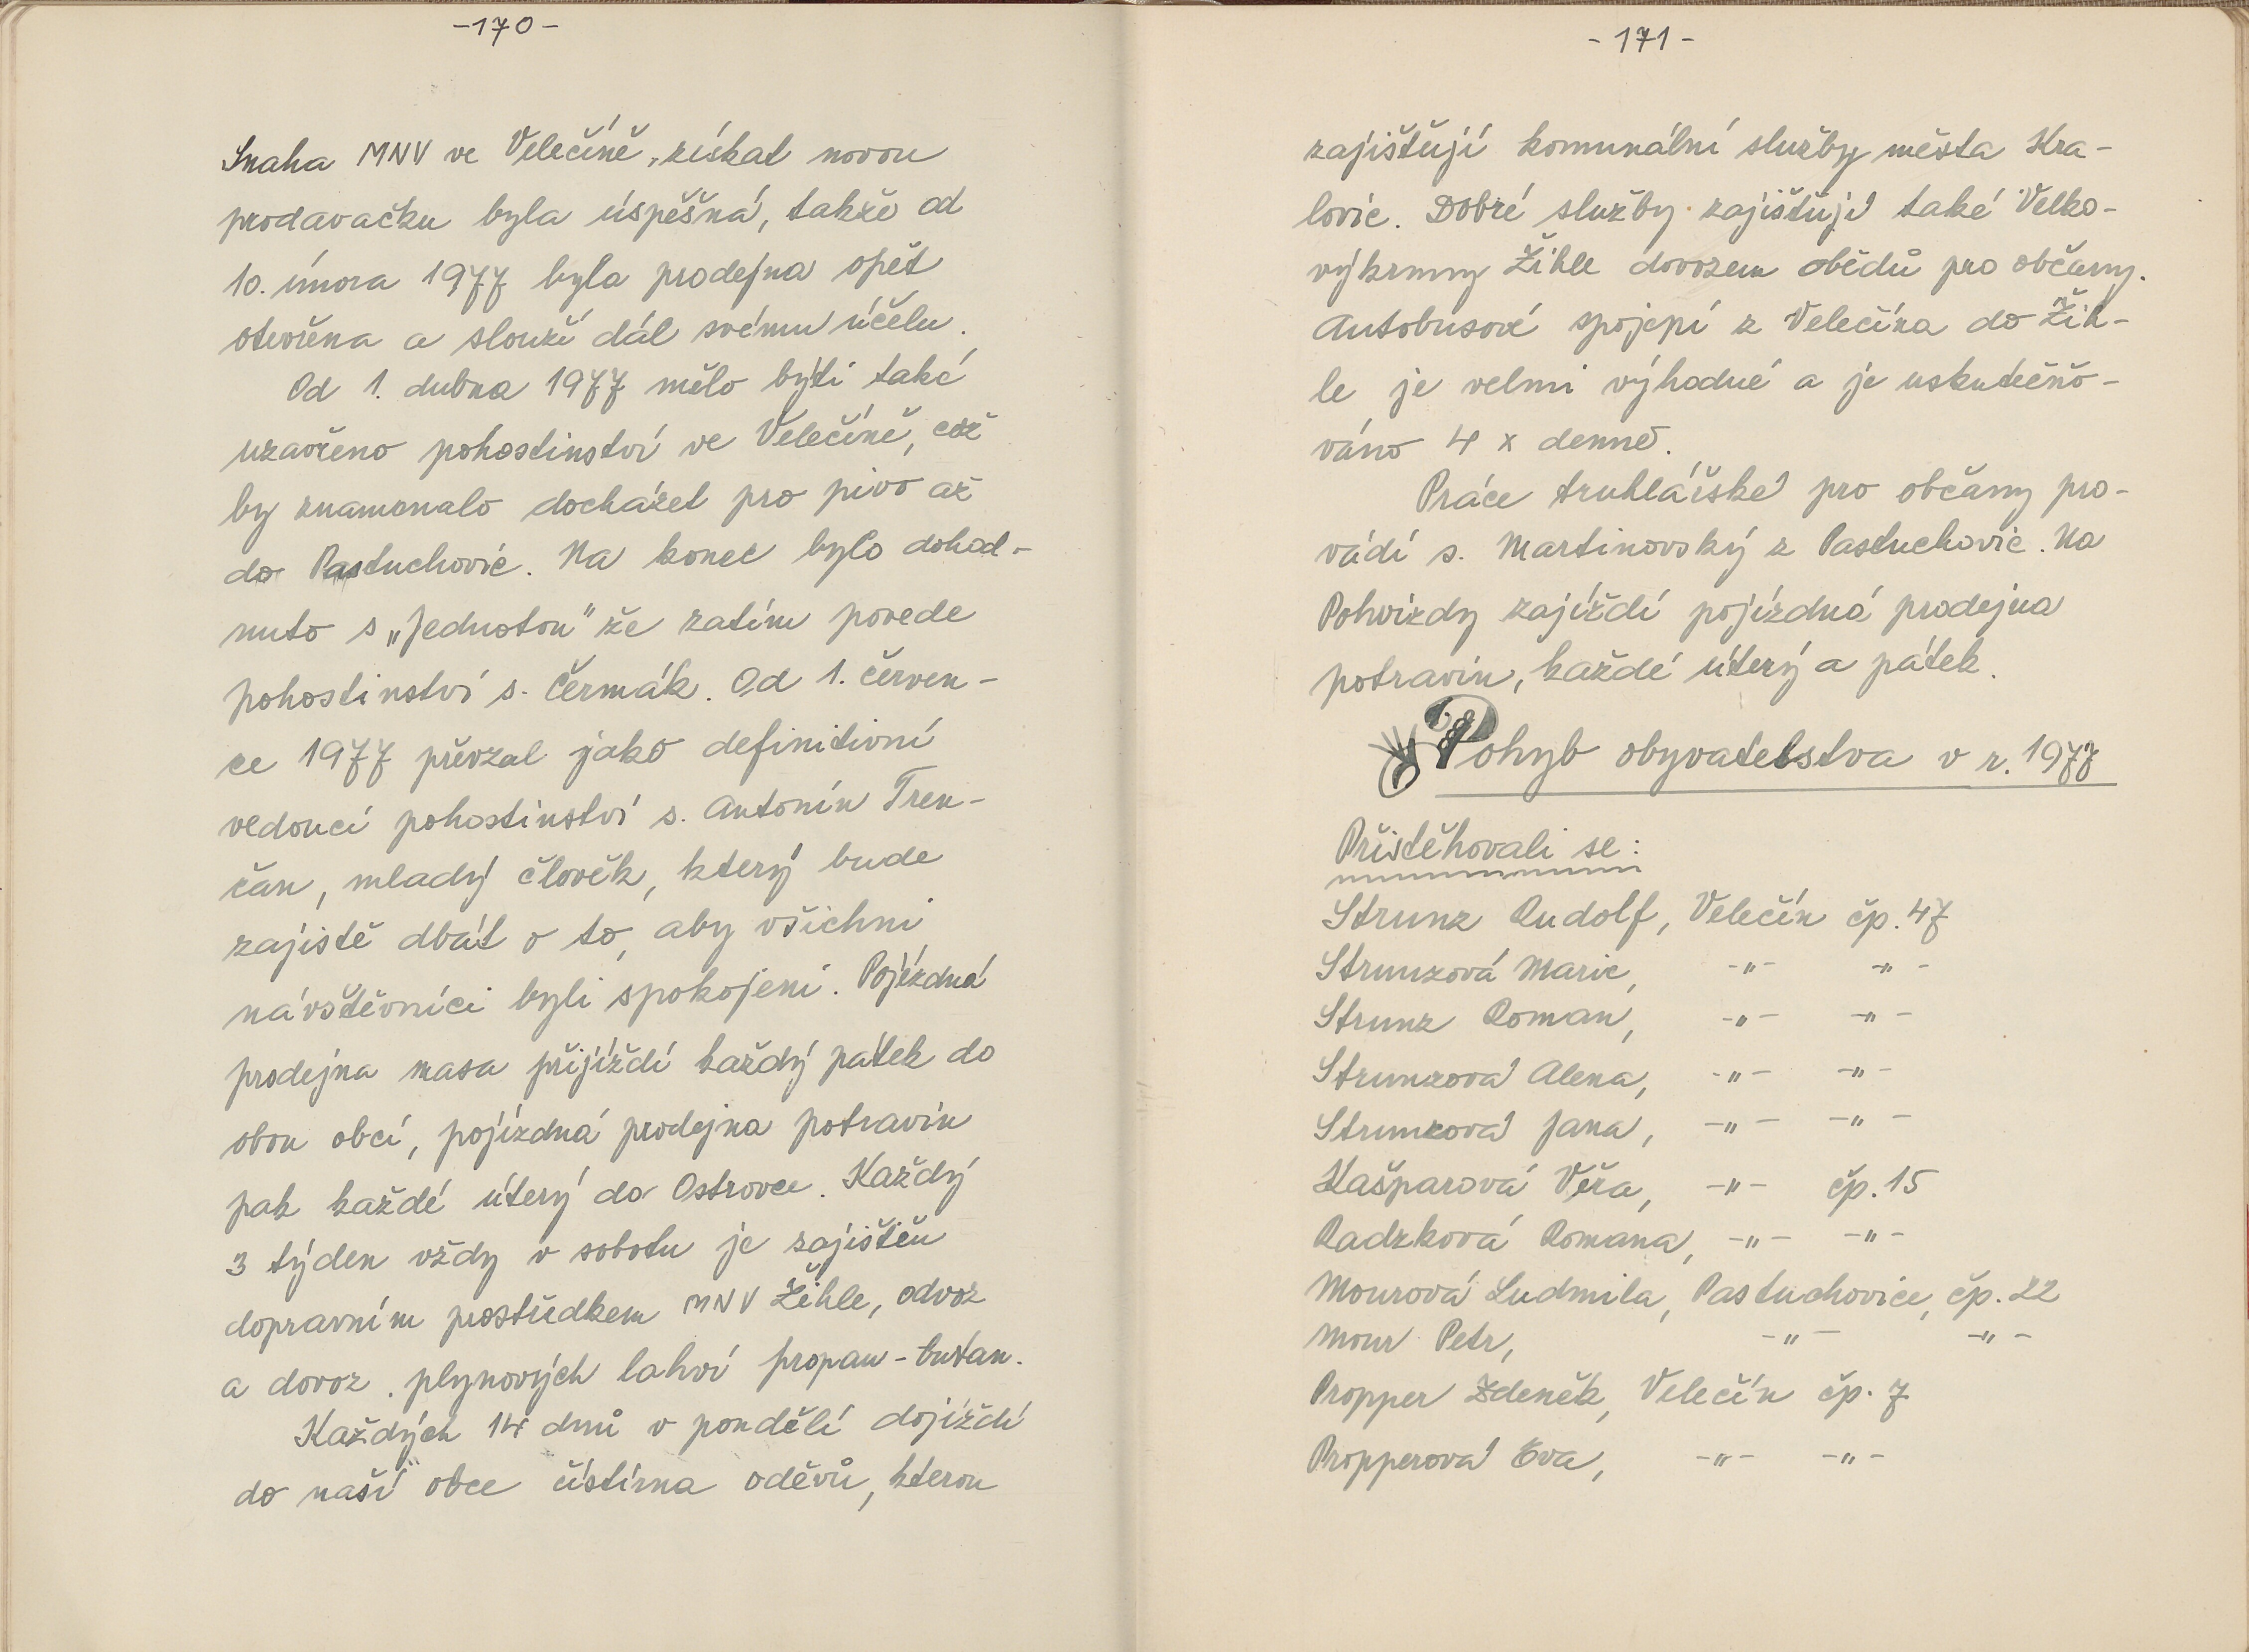 -170-
Snaha MNV ve Velečíně, získat novou
prodavačku byla úspěšná, takže od
10. února 1977 byla prodejna opět
otevřena a slouží dál svému účelu.
Od 1. dubna 1977 mělo býti také
uzavřeno pohostinství ve Velečíně, což
by znamenalo docházet pro pivo až
do Pastuchovic. Na konec bylo dohod-
nuto s „Jednotou" že zatím povede
pohostinství s. Čermák. Od 1. červen-
ce 1977 převzal jako definitivní
vedoucí pohostinství s. Antonín Tren-
čan, mladý člověk, který bude
zajistě dbát o to, aby všichni
návštěvníci byli spokojeni. Pojízdná
prodejna masa přijíždí každý pátek do
obou obcí, pojízdná prodejna potravin
pak každé úterý do Ostrovce. Každý
3 týden vždy v sobotu je zajištěn
dopravním prostředkem MNV Žihle, odvoz
a dovoz plynových lahví propan-butan.
Každých 14 dnů v pondělí dojíždí
do naší obce čistírna oděvů, kterou
-171-
zajištují komunální služby města Kra-
lovic. Dobré služby zajištují také Velko-
výkrmny Žihle dovozem obědů pro občany.
Autobusové spojení z Velečína do Žih-
le je velmi výhodné a je uskutečňo-
váno 4 x denně.
Práce truhlářské pro občany pro-
vádí s. Martinovský z Pastuchovic. Na
Pohvizdy zajíždí pojízdná prodejna
potravin, každé úterý a pátek.
Pohyb obyvatelstva v r. 1977
Přistěhovali se:
Strunz Rudolf, Velečín čp. 47
Strunzová Marie, -"- -"-
Strunz Roman, -"- -"-
Strunzová Alena, -"- -"-
Strunzová Jana, -"- -"-
Kašparová Věra, -"- čp. 15
Radzková Romana, -"- -"-
Mourová Ludmila, Pastuchovice, čp. 22
Mour Petr, -"- -"-
Propper Zdeněk, Velečín čp. 7
Propperová Eva, -"- -"-